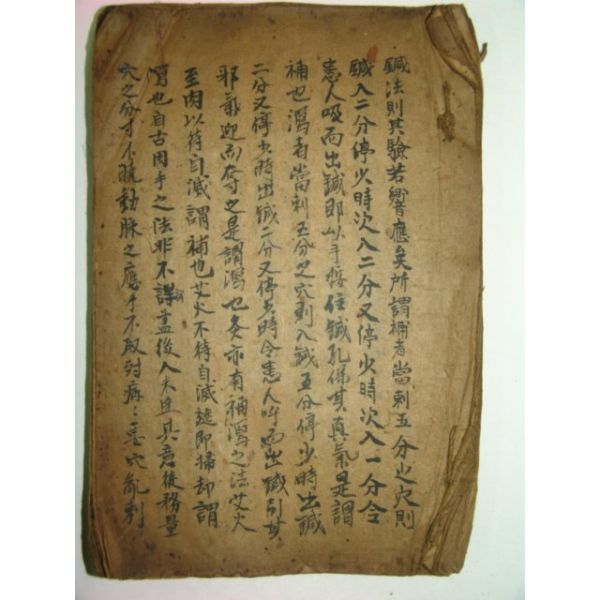 鍼法則其驗若響應矣所謂補者當刺五分之穴則
鍼入二分停少時次入二分又停少時次入一分令
患人吸而出鍼即以手捘住鍼孔保其真氣是謂
補也瀉者當刺五分之穴則入鍼五分停少時出鍼
二分又停少時出鍼二分又停少時令患人呼而出鍼引其
邪氣迎而奪之是謂瀉也灸亦有補瀉之法艾火
至肉以待自滅謂補也艾火不待自滅遽即掃却謂
瀉也自古用手之法非不詳盡後人未達其意徒務量
穴之分寸不曉動脉之應手不取對病之基穴亂刺